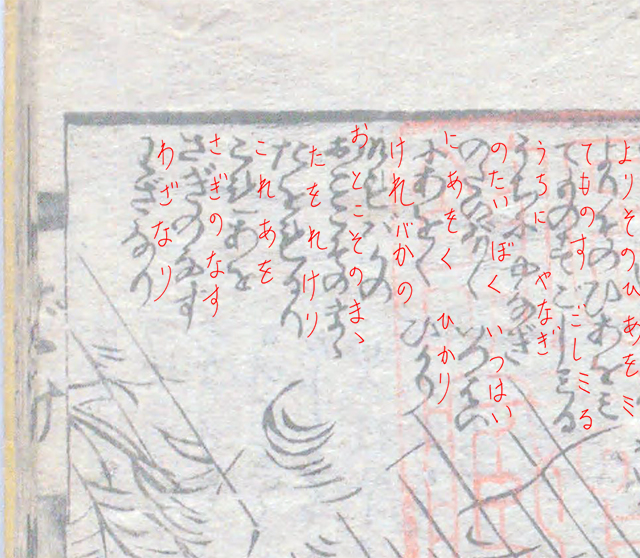 よりそのひあをミ
てものすごしミる
うちに やなぎ
のたいぼく いつはい
にあをく ひかり
けれバかの
おとこそのまゝ
たをれけり
これ あを
さぎのなす
わざなり